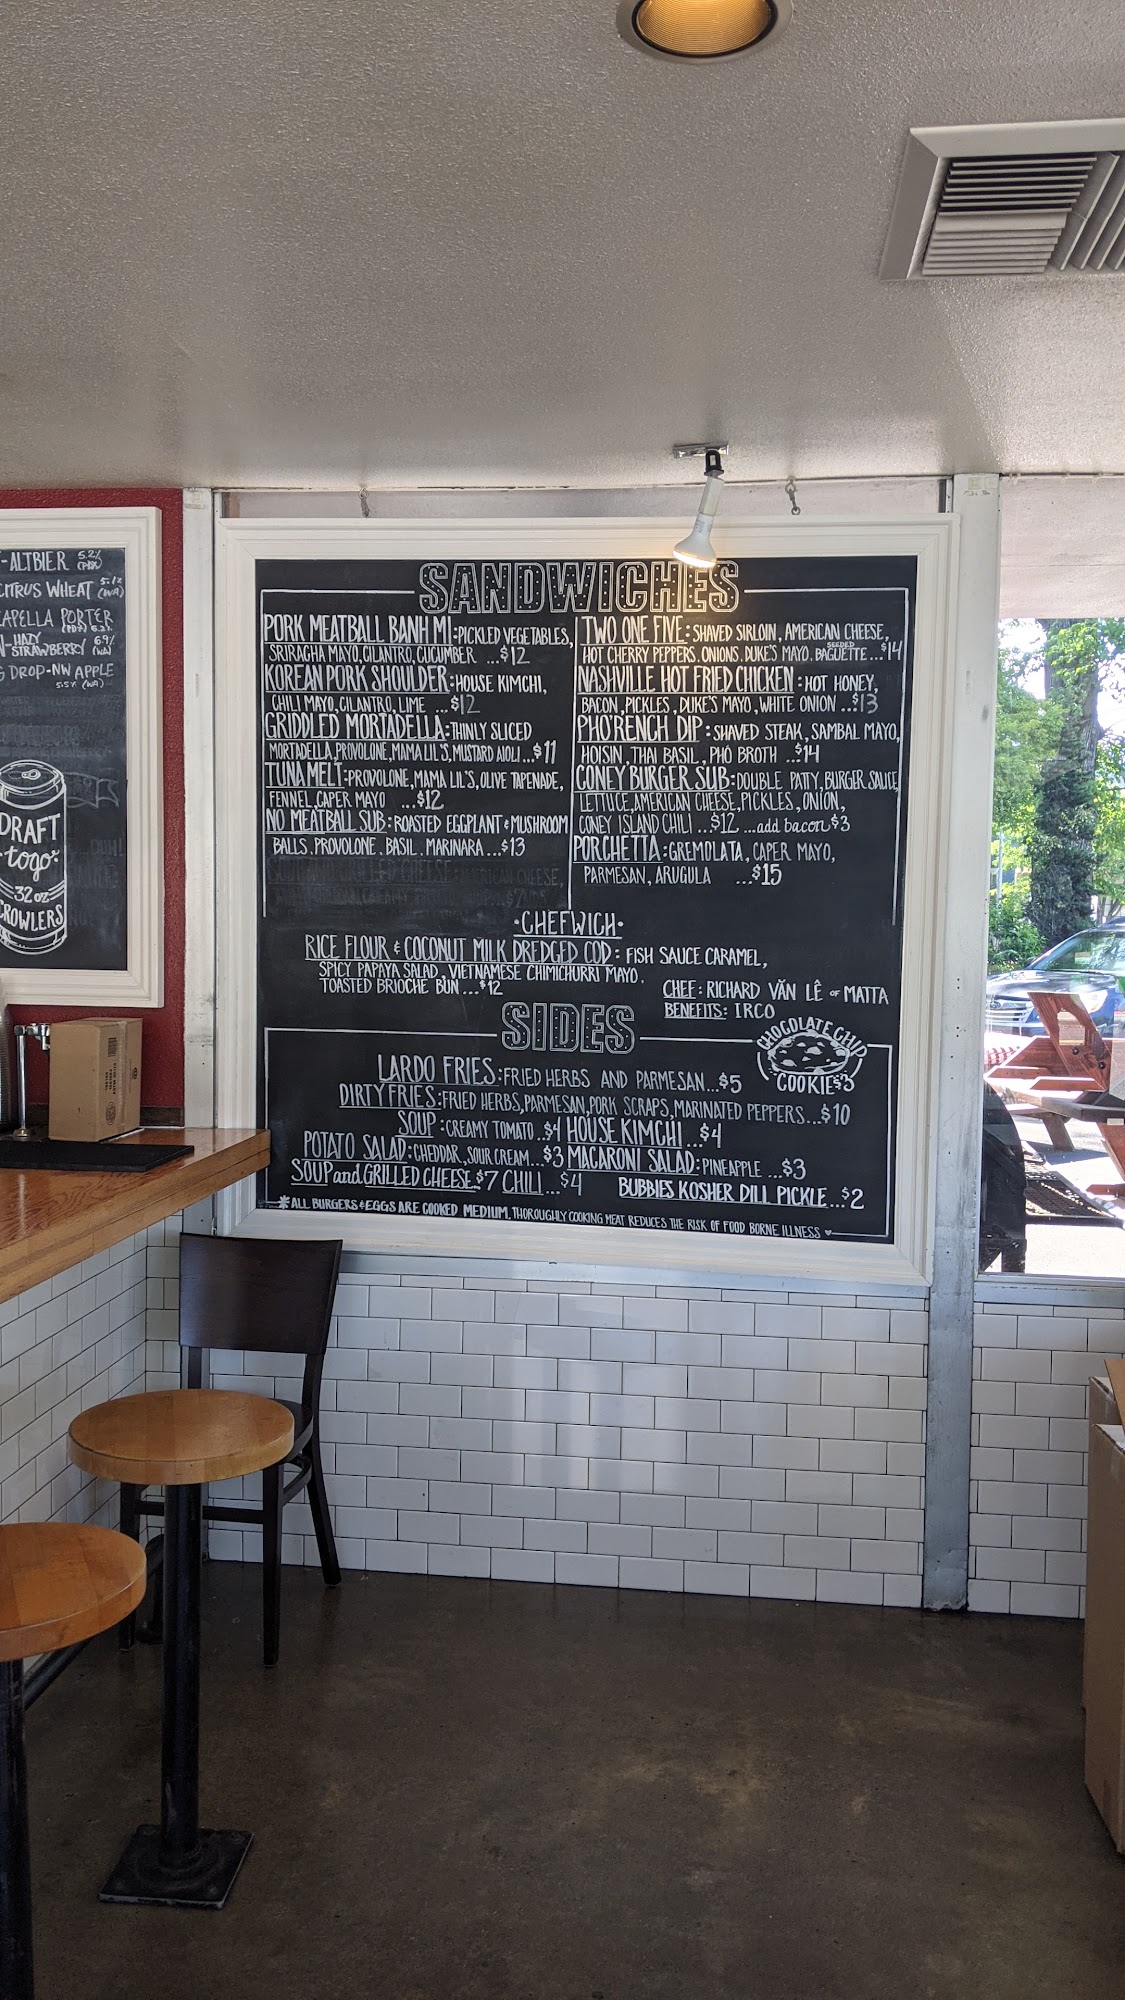 -ALTBIER 5.2% (PDX)
CITRUS WHEAT 5.1% (WA)
CAPELLA PORTER
(PDX) 5.2%
-HAZY
STRAWBERRY 6.9% (WA)
DROP-NW APPLE
5.5% (WA)
DRAFT
to go:
32 oz
CROWLERS
SANDWICHES
PORK MEATBALL BANH MI: PICKLED VEGETABLES,
SRIRAGHA MAYO, CILANTRO, CUCUMBER ...$12
KOREAN PORK SHOULDER: HOUSE KIMCHI,
CHILI MAYO, CILANTRO, LIME ...$12
GRIDDLED MORTADELLA: THINLY SLICED
MORTADELLA, PROVOLONE, MAMA LIL'S, MUSTARD AIOLI...$11
TUNA MELT: PROVOLONE, MAMA LIL'S, OLIVE TAPENADE,
FENNEL, CAPER MAYO ...$12
NO MEATBALL SUB: ROASTED EGGPLANT & MUSHROOM
BALLS, PROVOLONE, BASIL, MARINARA ...$13
TWO ONE FIVE: SHAVED SIRLOIN, AMERICAN CHEESE,
HOT CHERRY PEPPERS, ONIONS, DUKE'S MAYO, SEEDED BAGUETTE...$14
NASHVILLE HOT FRIED CHICKEN: HOT HONEY,
BACON, PICKLES, DUKE'S MAYO, WHITE ONION ...$13
PHO'RENCH DIP: SHAVED STEAK, SAMBAL MAYO,
HOISIN, THAI BASIL, PHO BROTH ...$14
CONEY BURGER SUB: DOUBLE PATTY, BURGER SAUCE,
LETTUCE, AMERICAN CHEESE, PICKLES, ONION,
CONEY ISLAND CHILI ...$12 ...add bacon $3
PORCHETTA: GREMOLATA, CAPER MAYO,
PARMESAN, ARUGULA ...$15
·CHEFWICH·
RICE FLOUR & COCONUT MILK DREDGED COD: FISH SAUCE CARAMEL,
SPICY PAPAYA SALAD, VIETNAMESE CHIMICHURRI MAYO,
TOASTED BRIOCHE BUN ...$12
CHEF: RICHARD VĂN LÊ OF MATTA
BENEFITS: IRCO
SIDES
CHOCOLATE CHIP
COOKIE $3
LARDO FRIES: FRIED HERBS AND PARMESAN...$5
DIRTY FRIES: FRIED HERBS, PARMESAN, PORK SCRAPS, MARINATED PEPPERS...$10
SOUP: CREAMY TOMATO ..$4 HOUSE KIMCHI ...$4
POTATO SALAD: CHEDDAR, SOUR CREAM...$3 MACARONI SALAD: PINEAPPLE ...$3
SOUP and GRILLED CHEESE..$7 CHILI ...$4 BUBBIES KOSHER DILL PICKLE...$2
*ALL BURGERS & EGGS ARE COOKED MEDIUM, THOROUGHLY COOKING MEAT REDUCES THE RISK OF FOOD BORNE ILLNESS ♥